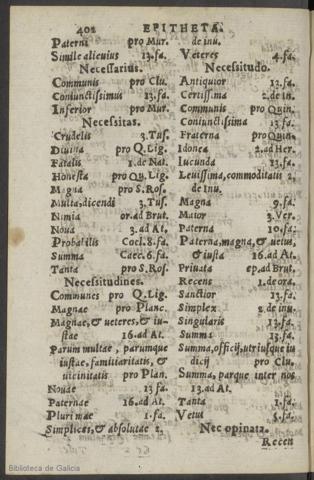 402 EPITHETA.
Paterni pro Mur.
Simile alicuius 13.fa.
Necessarius.
Communis pro Clu.
Coniunctissimus 13.fa.
Inferior pro Mur.
Necessitas.
Crudelis 3.Tus.
Diuina pro Q.Lig.
Fatalis 1.de Nat.
Honesta pro Qu.Lig.
Magna pro S.Ros.
Multa, dicendi 3.Tus.
Nimia or.ad Brut.
Noua 3.ad At.
Probabilis Coel.8.fa.
Summa Caec.6.fa.
Tanta pro S.Ros.
Necessitudines.
Communes pro Q.Lig.
Magnae pro Planc.
Magnae, & veteres, & iu-
stae 16.ad At.
Parum multae, parumque
iustae, familiaritatis, &
uicinitatis pro Plan.
Nouae 13 fa.
Paternae 16.ad At.
Plurimae 1.fa.
Simplices, & absolutae 2.
de inu.
Veteres 4.fa.
Necessitudo.
Antiquior 12.fa.
Certissima 2.de in.
Communis pro Quin.
Coniunctissima 13.fa.
Fraterna pro Quin.
Idonea 2.ad Her.
Iucunda 13.fa.
Leuissima, commoditatis 2.
de Inu.
Magna 9.fa.
Maior 3.Ver.
Paterna 10.fa.
Paterna, magna, & uetus,
& iusta 16.ad At.
Priuata ep.ad Brut.
Recens 1.de ora.
Sanctior 13.fa.
Simplex 2.de inu.
Singularis 13.fa.
Summa 13.fa.
Summa, officij, utriusque iu
dicij pro Clu.
Summa, parque inter nos
13.ad At.
Tanta 1.fa.
Vetus 5.fa.
Nec opinata.
Recen
Biblioteca de Galicia